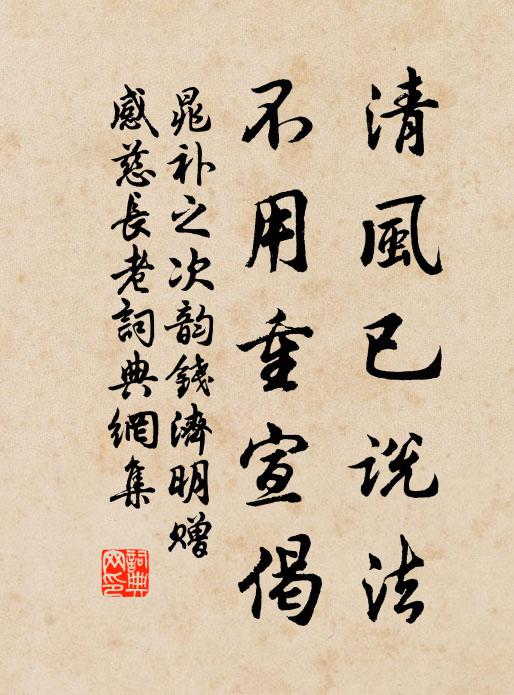 清風已說法
不用重宣偈
晁補之次韵錢濟明贈
感慈長老詞典網集
詞典网印